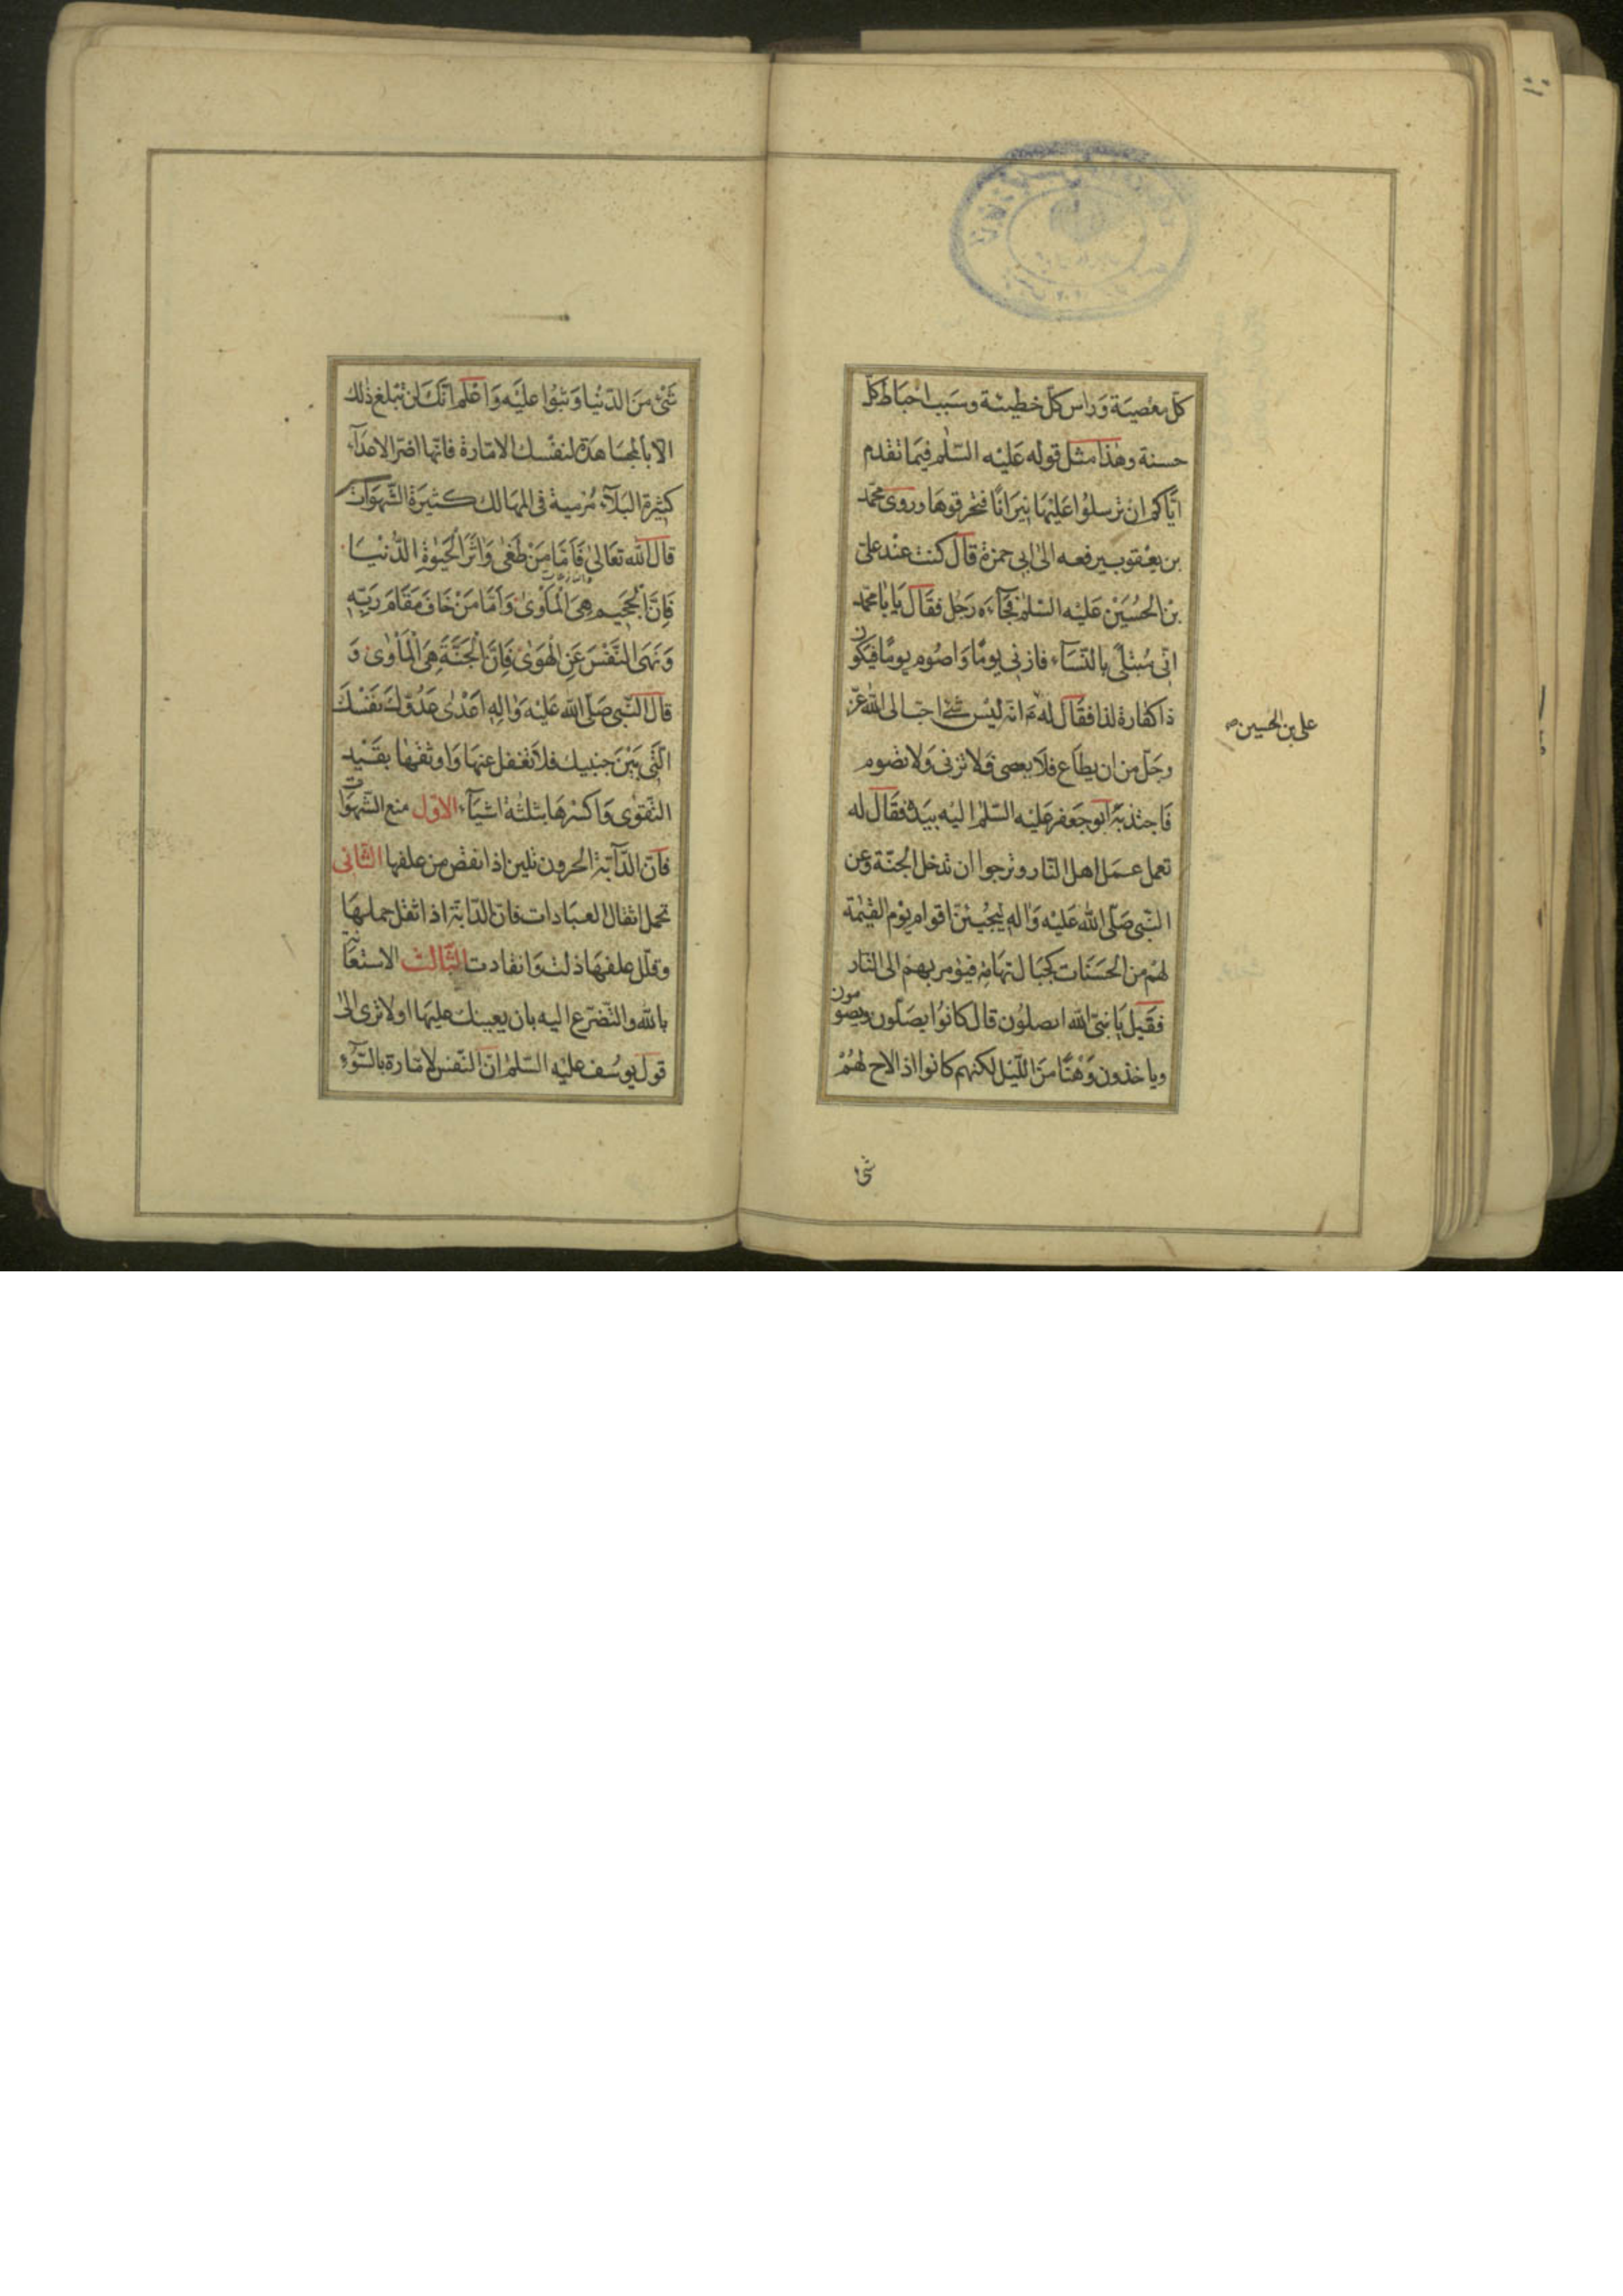 كلّ معصية وراس كلّ خطيئة وسبب احباط كلّ
حسنة وهذا مثل قوله عليه السّلم فيما تقدم
ايّاكم ان ترسلوا عليها نيرانا فتحرقوها وروى محمّد
بن يعقوب يرفعه الى ابى حمزة قال كنت عند علىّ
بن الحسين عليه السّلم فجآءه رجل فقال يا با محمّد
انّى مبتلى بالنّسآء فازنى يوما واصوم يوما فيكون
ذا كفّارة لذا فقال له ع انّه ليس شئ احبّ الى الله عزّ
وجلّ من ان يطاع فلا يعصى فلا تزنى ولا تصوم
فاجتذبه ابو جعفر عليه السّلم اليه بيده فقال له
تعمل عمل اهل النّار وترجوا ان تدخل الجنّة وعن
النّبى صلّى الله عليه واله ليجيئنّ اقوام يوم القيمة
لهم من الحسنات كجبال تهامة فيؤمر بهم الى النّار
فقيل يا نبىّ الله ايصلّون قال كانوا يصلّون ويصومون
وياخذون وهنا من اللّيل لكنهم كانوا اذا لاح لهم
على بن الحسين ص
شئ
شئ من الدّنيا وثبوا عليه واعلم انّك لن تبلغ ذلك
الا بالمجاهدة لنفسك الامّارة فانّها اضرّ الاعدآء
كثيرة البلآء مرمية فى المهالك كثيرة الشّهوات
قال الله تعالى فامّا من طغى واثر الحيوة الدّنيا
فانّ الجحيم هى الماوى وامّا من خاف مقام ربّه
ونهى النّفس عن الهوى فانّ الجنّة هى الماوى و
قال النّبى صلّى الله عليه واله اعدى عدوّك نفسك
الّتى بين جنبيك فلا تغفل عنها واوثقها بقيد
التّقوى واكسرها بثلثة اشيآء الاوّل منع الشّهوات
فانّ الدّآبّة الحرون تلين اذا نقص من علفها الثّانى
تحمل اثقال العبادات فانّ الدّابّة اذا ثقل حملها
وقلّل علفها ذلت وانقادت الثّالث الاستعانة
بالله والتّضرّع اليه بان يعينك عليها اولا ترى الى
قول يوسف عليه السّلم انّ النّفس لامّارة بالسّوء